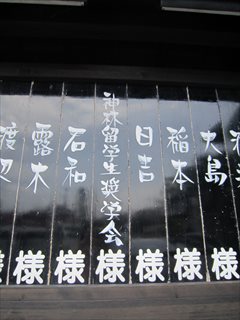 大島様
稲本様
日吉様
神林留学生奨学会様
石和様
露木様